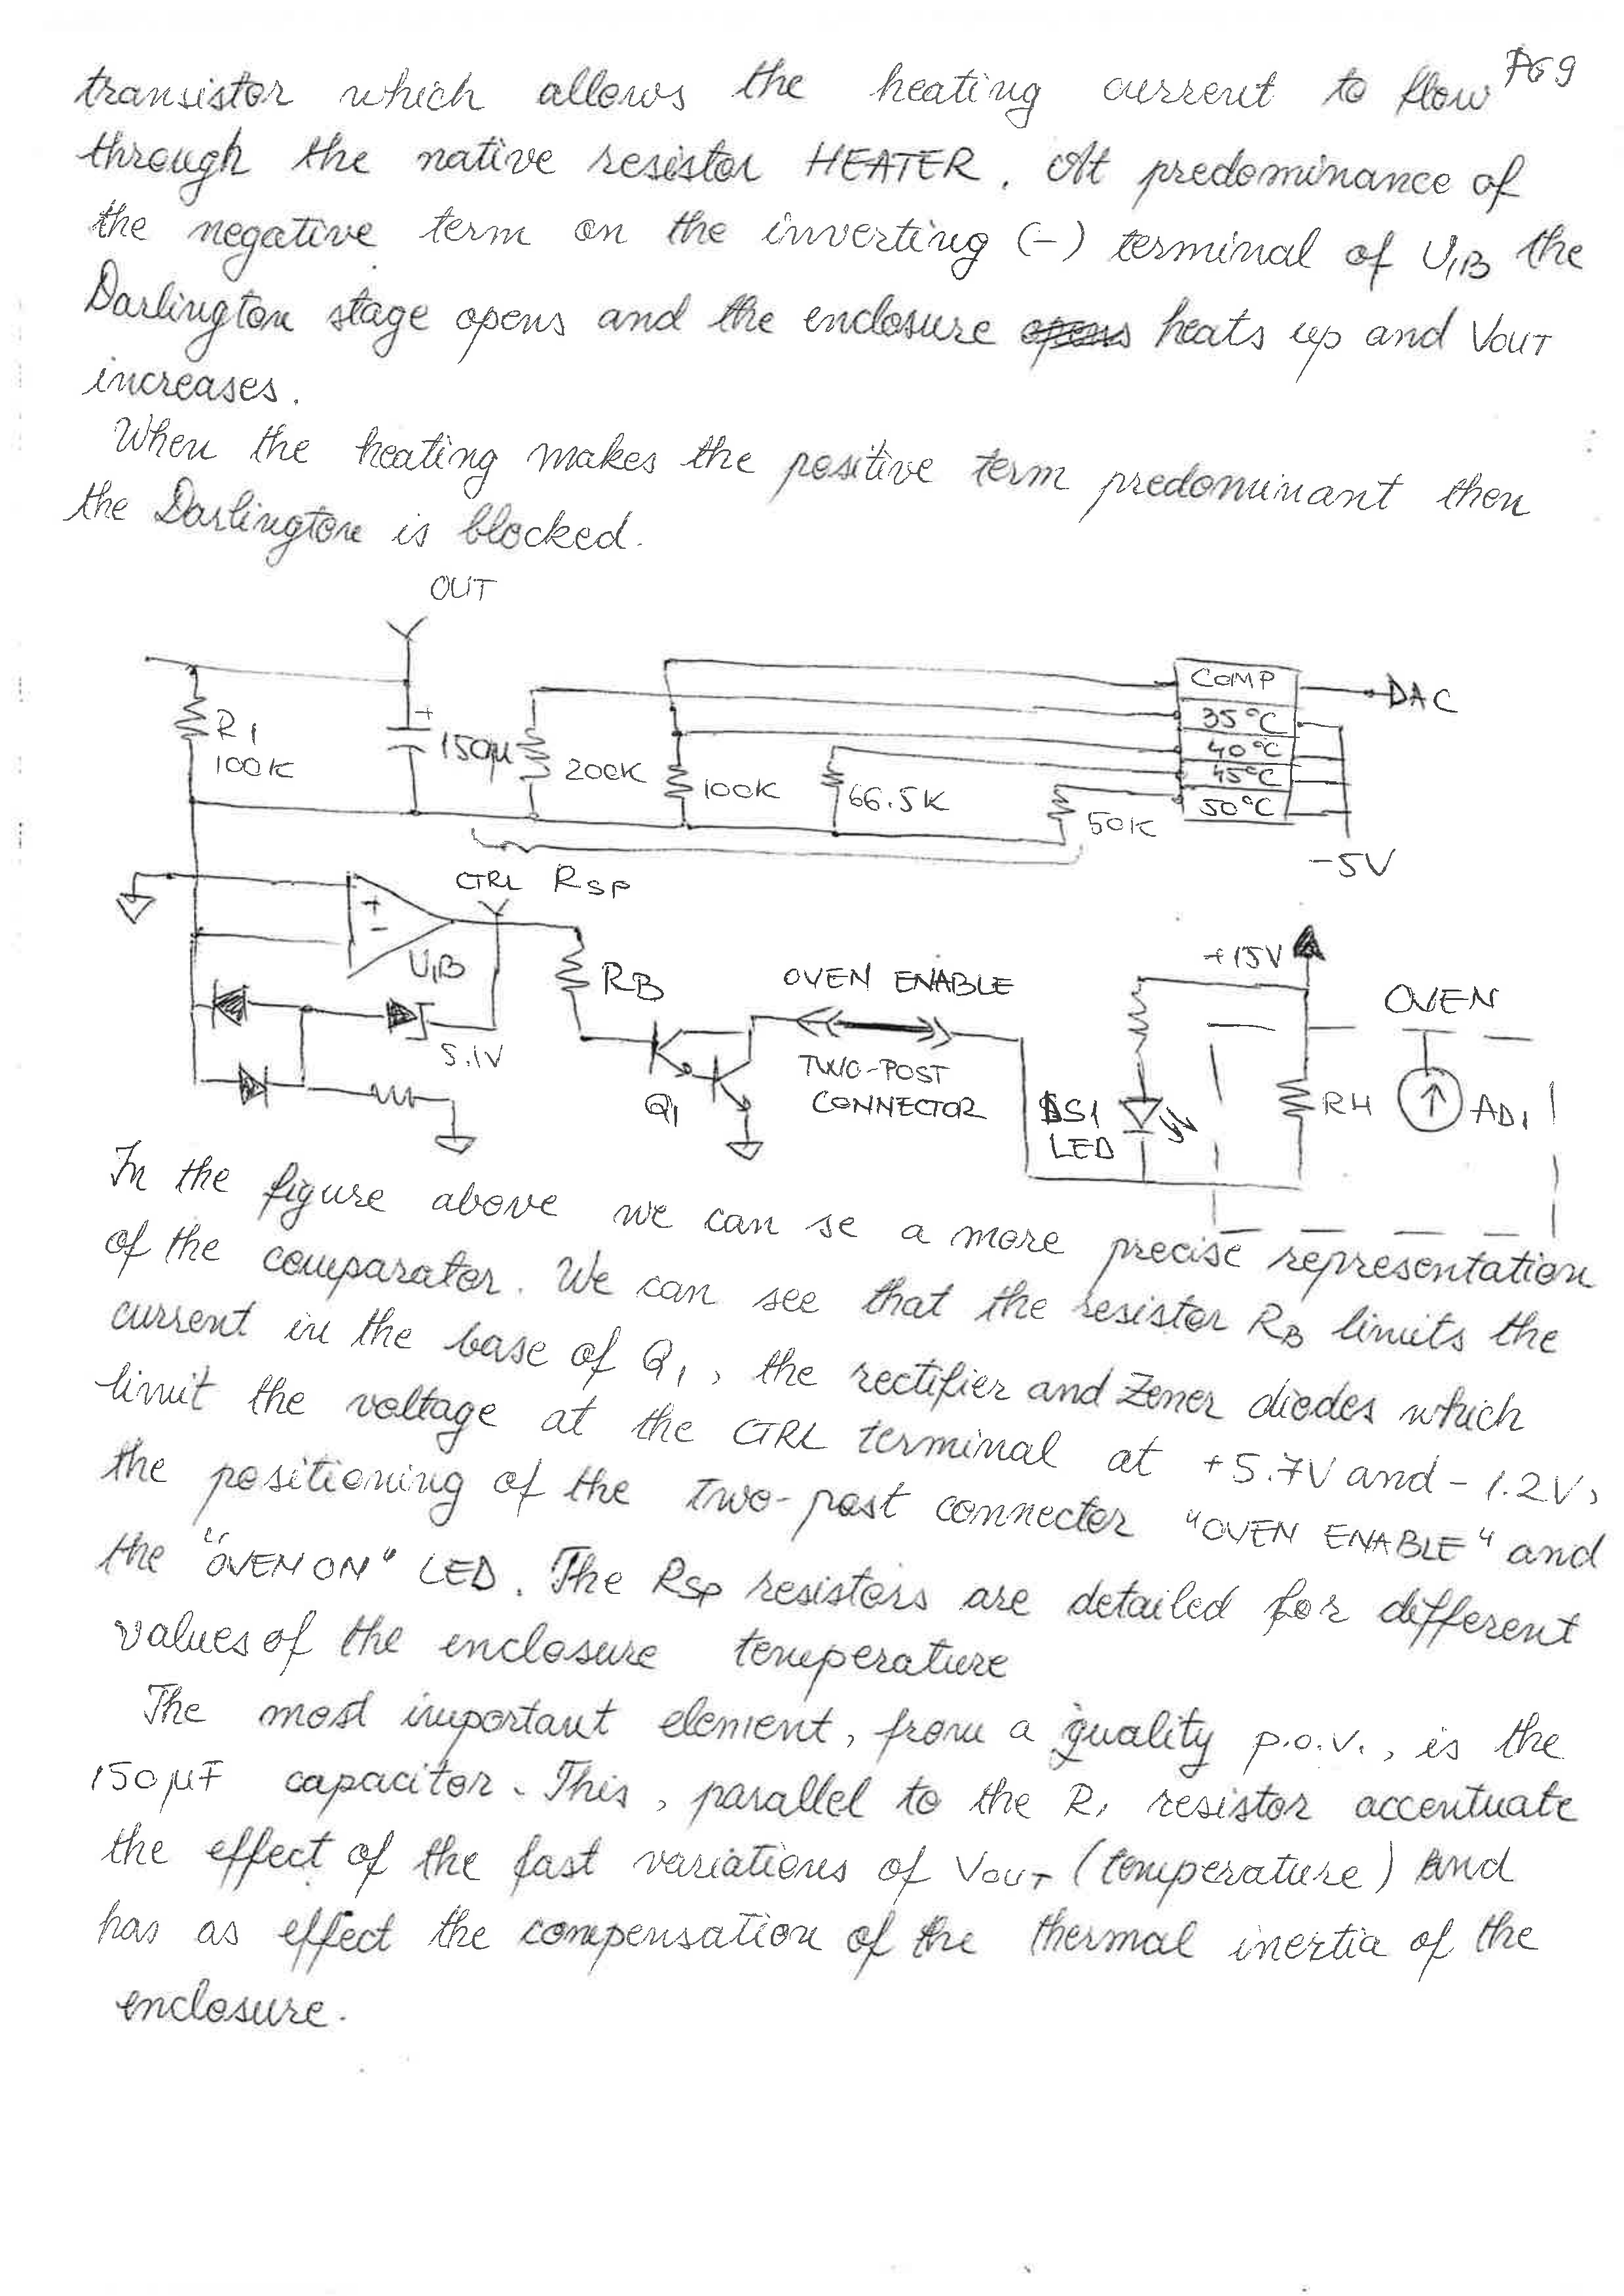 PG 9
transistor which allows the heating current to flow
through the native resistor HEATER. At predominance of
the negative term on the inverting (-) terminal of U1B the
Darlington stage opens and the enclosure heats up and VOUT
increases.
When the heating makes the positive term predominant then
the Darlington is blocked.
OUT
COMP
DAC
35°C
40°C
45°C
50°C
-5V
R1
100K
+
150µ
200K
100K
66.5K
50K
CTRL RSP
+
-
U1B
RB
5.1V
Q1
OVEN ENABLE
TWO-POST
CONNECTOR
+15V
OVEN
DS1
LED
RH
AD1
In the figure above we can se a more precise representation
of the comparator. We can see that the resistor RB limits the
current in the base of Q1, the rectifier and Zener diodes which
limit the voltage at the CTRL terminal at +5.7V and -1.2V,
the positioning of the two-post connecter "OVEN ENABLE" and
the "OVEN ON" LED. The RSP resistors are detailed for different
values of the enclosure temperature
The most important element, from a quality p.o.v., is the
150µF capacitor. This, parallel to the R1 resistor accentuate
the effect of the fast variations of VOUT (temperature) and
has as effect the compensation of the thermal inertia of the
enclosure.